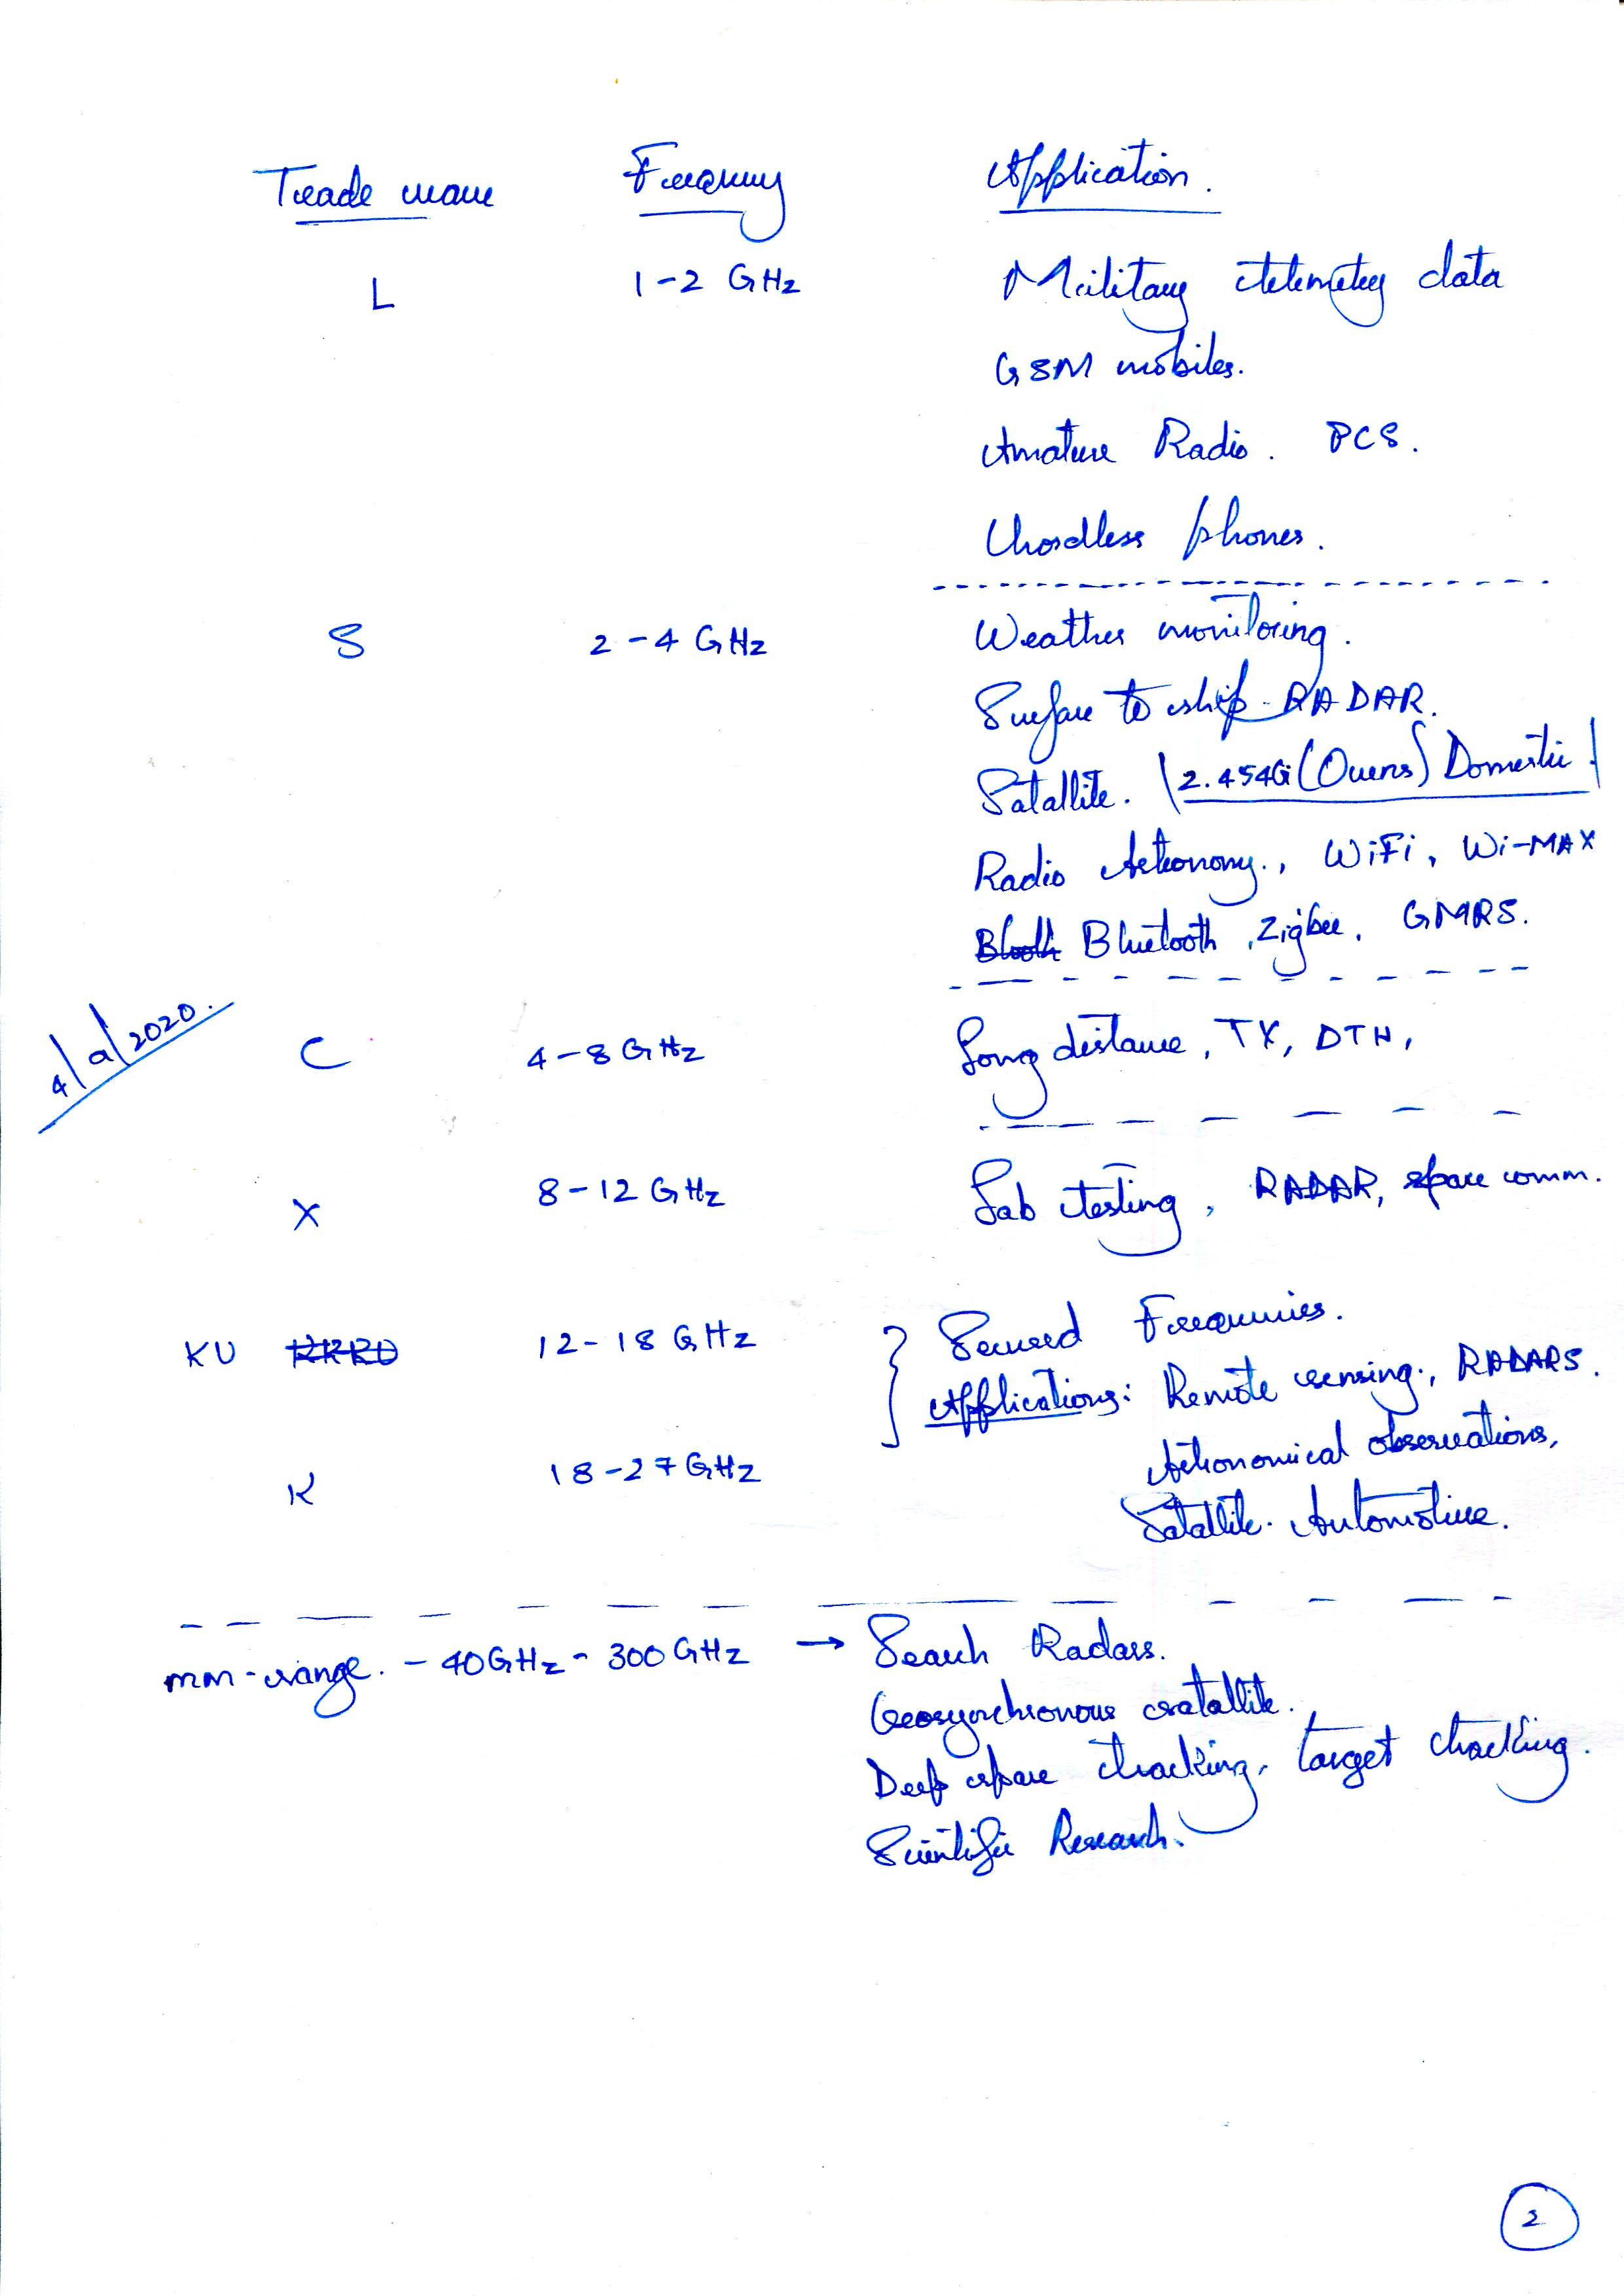 Trade name Frequency Application.
L 1-2 GHz Military telemetry data
GSM mobiles.
Amature Radio. PCS.
Chordless phones.
S 2-4 GHz Weather monitoring.
Surface to ship RADAR.
Satallite. (2.454G (Ovens) Domestic)
Radio Astronomy., WiFi, Wi-MAX
Bluetooth, Zigbee, GMRS.
4/9/2020.
C 4-8 GHz Long distance, TX, DTH,
X 8-12 GHz Lab testing, RADAR, space comm.
KU 12-18 GHz Secured Frequencies.
Applications: Remote sensing., RADARS.
K 18-27 GHz Astronomical observations,
Satallite. Automotive.
mm-range. - 40GHz - 300GHz → Search Radars.
Geosynchronous satallite.
Deep space tracking, target tracking.
Scientific Research.
2